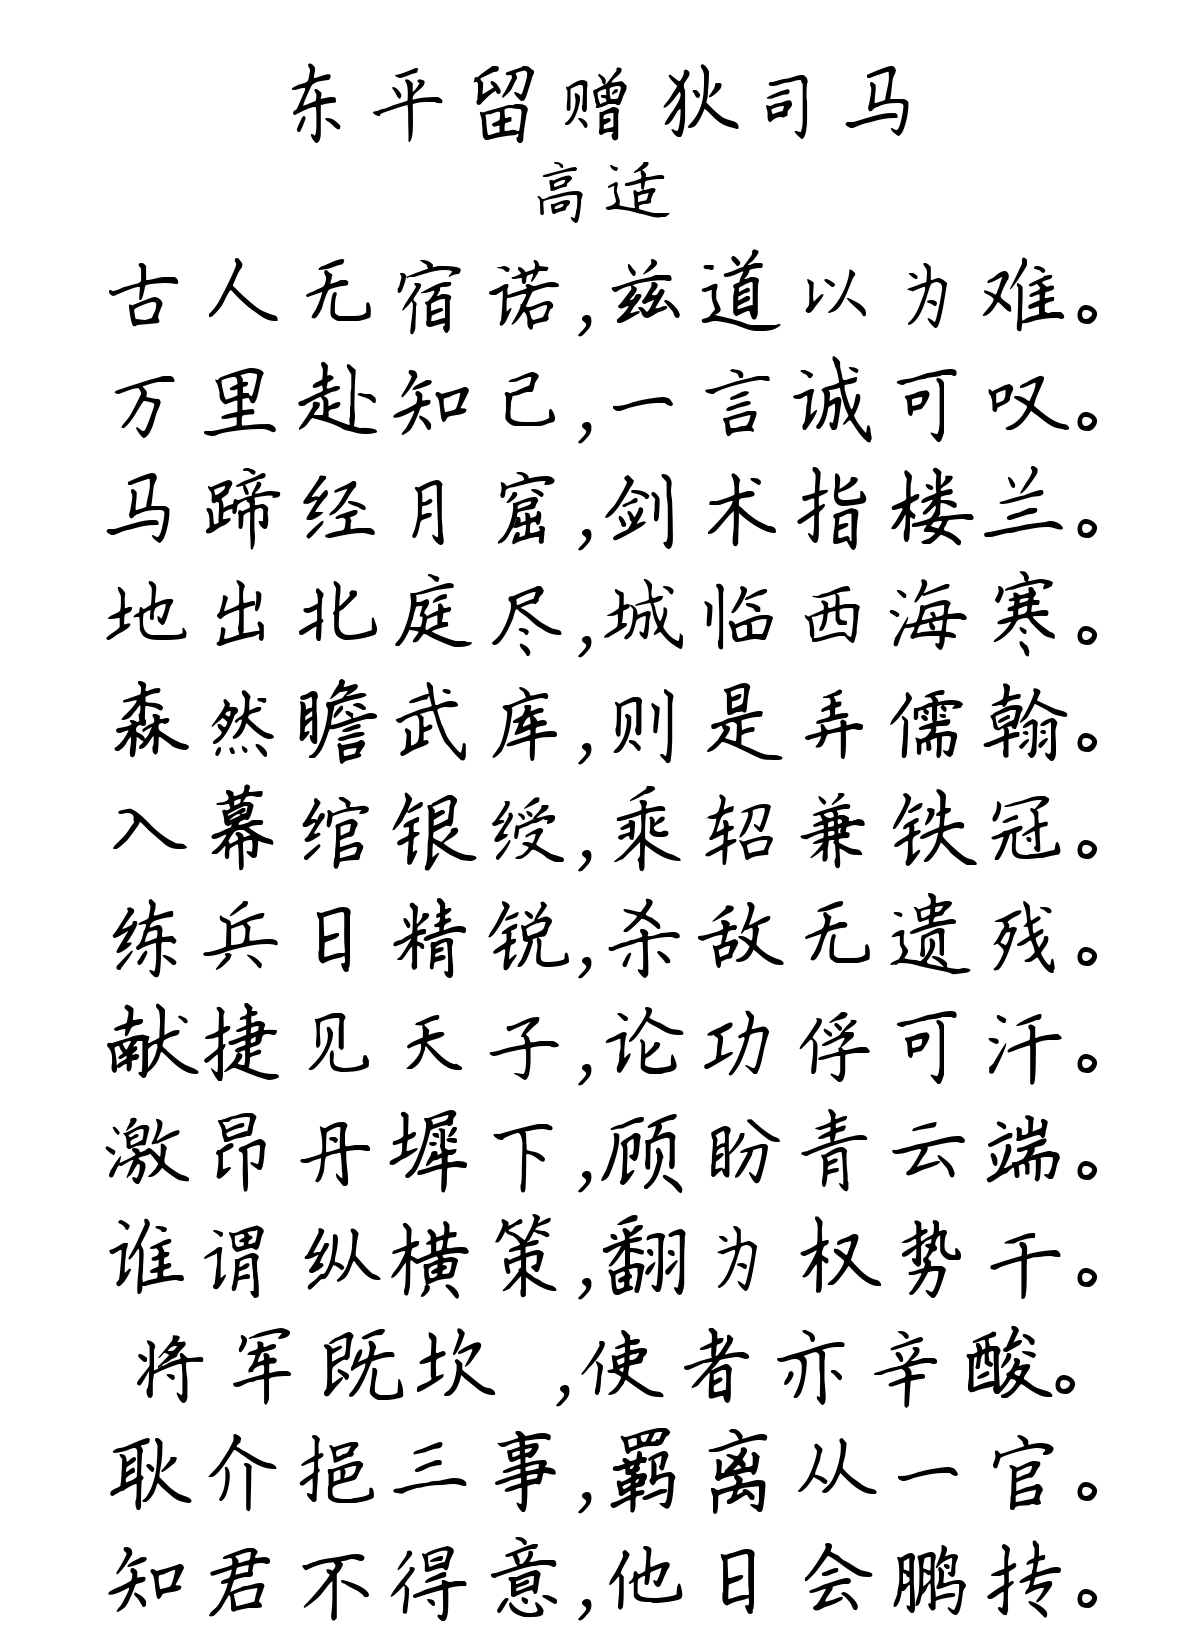 东平留赠狄司马
高适
古人无宿诺,兹道以为难。
万里赴知己,一言诚可叹。
马蹄经月窟,剑术指楼兰。
地出北庭尽,城临西海寒。
森然瞻武库,则是弄儒翰。
入幕绾银绶,乘轺兼铁冠。
练兵日精锐,杀敌无遗残。
献捷见天子,论功俘可汗。
激昂丹墀下,顾盼青云端。
谁谓纵横策,翻为权势干。
将军既坎 ,使者亦辛酸。
耿介挹三事,羁离从一官。
知君不得意,他日会鹏抟。